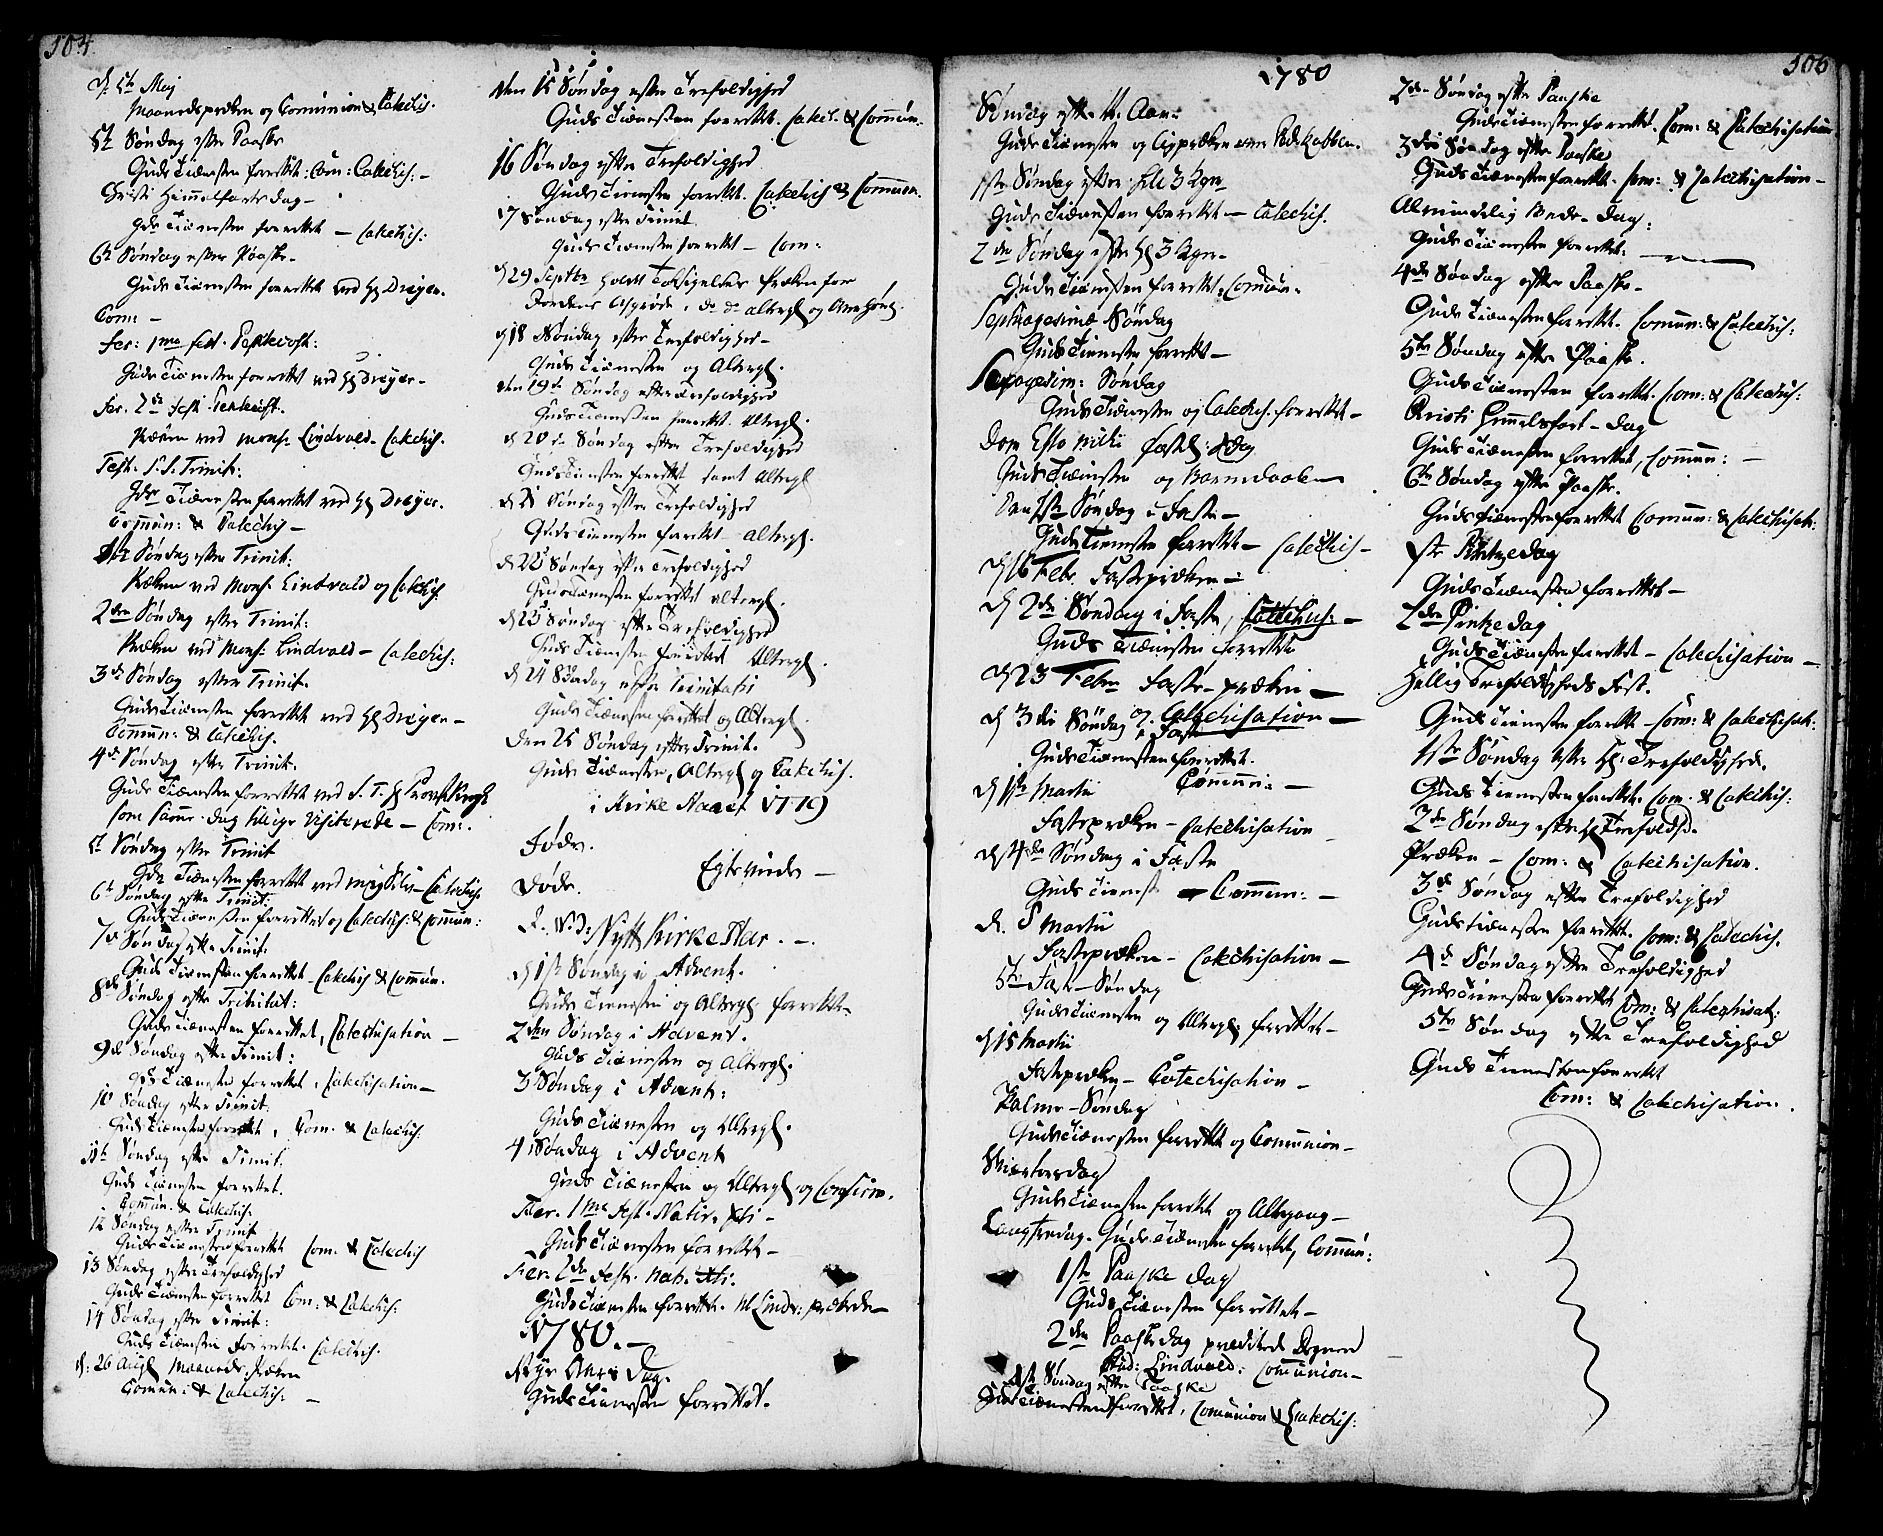 504.
d. 5te Maj
Maanedspræken og Communion & Catechis.
5te Søndag efter Paaske
Guds Tiænesten forrettet: Com: Catechis: –
Christi Himmelfarts dag –
Gds Tiænesten forrettet – Catechis:
6te Søndag efter Paaske –
Guds Tiænesten forrettet ved Hr Dreyer.
Com: –
Fer: 1ma fest. Pentecost:
Guds Tiænesten forrettet ved Hr Dreyer –
Fer. 2da fest Pentecost.
Præken ved Mons: Lindvald – Catechis.
Fest: S.S. Trinit:
Gds Tiænesten forrettet ved Hr Dreyer.
Commun: & Catechis –
1ste Søndag efter Trinit:
Præken ved Mons: Lindvald og Catechis:
2den Søndag efter Trinit:
Præken ved Mons: Lindvald – Catechis:
3de Søndag efter Trinit.
Guds Tiænesten forrettet ved Hr Dreyer –
Commun: & Catechis.
4de Søndag efter Trinit.
Guds Tiænesten forrettet ved S. T. Hr Provst Krogh
som samme dag tillige Visiterede – Com:.
5te Søndag efter Trinit
Gds Tiænesten forrettet ved mig Selv – Catechis
6te Søndag efter Trinit:
Guds Tiænesten forrettet og Catechis: & Commun:
7de Søndag efter Trinit.
Guds Tiænesten forrettet – Catechis & Commun.
8de Søndag efter Trinitat:
Guds Tiænesten forrettet, Catechisation –
9de Søndag efter Trinit:
Gds Tiænesten forrettet, Catechisation –
10 Søndag efter Trinit.
Guds Tiænesten forrettet, Com. & Catechis:
11te Søndag efter Trinit.
Guds Tiænesten forrettet.
Commun. & Catechis:
12 Søndag efter Trinit
Guds Tiænesten forrettet Com. & Catechis
13 Søndag efter Trefoldighed
Guds Tiænesten forrettet Com: & Catechis:
14 Søndag efter Trinit:
Guds Tiænesten forrettet. Catechis.
d: 26 Aug Maaneds Præken
Commun: & Catechis: –
den 15 Søndag efter Trefoldighed
Guds Tiænesten forrettet. Catec. & Commun:
16 Søndag efter Trefoldighed
Guds Tienesten forrettet Catechis & Commun.
17 Søndag efter Trinit
Guds Tiænesten forrettet – Com:
d 29 Septbr holdt Taksigelses Præken for
Jordens Afgrøde,
d 18 Søndag efter Trefoldighed –
Guds Tiænesten og Altergl.
den 19de Søndag efter Trefoldighed
Guds Tiænesten forrettet. Altergl.
d 20de Søndag efter Trefoldighed
Guds Tiænesten forrettet samt Altergl
d 21 Søndag efter Trefoldighed
Guds Tiænesten forrettet – Altergl.
d 22 Søndag efter Trefoldighed
Guds Tiænesten forrettet Altergl.
d 23 Søndag efter Trefoldighed
Guds Tiænesten forrettet Altergl.
d 24 Søndag efter Trinitatis
Guds Tiænesten forrettet og Altergl.
den 25 Søndag efter Trinit.
Guds Tiænesten, Altergl og Catechis.
i Kirke Aaret 1779
Fødde.
Egteviede –
Døde.
Nytt Kirke Aar. –
d 1ste Søndag i Advent.
Guds Tienesten og Altergl. forrettet –
2den Søndag i Advent.
Guds Tiænesten og Altergl.
3 Søndag i Advent:
Guds Tiænesten og Altergl.
4 Søndag i Advent
Guds Tiænesten og Altergl. og Confirm.
Fer. 1ma Fest. Nativ. Xti –
Guds Tiænesten forrettet –
Fer. 2da Fest. Nat. Xti.
Guds Tiænesten forrettet. M Lindv: prækede –
1780. –
Nyt Aars Dag.
Guds Tienesten forrettet.
1780
506
Søndag efter N. Aar:
1ste Søndag efter Hel. 3 Kgr
Guds Tiænesten forrettet – Catechis.
2den Søndag efter H 3 Kgr –
Guds Tiænesten forrettet, Commun.
Septuagesimæ Søndag
Guds Tienesten forrettet –
Sexagesim: Søndag
Guds Tiænsten og Catechis. forrettet –
Dom Esto mihi
Guds Tiænesten og Barnedaab
Den 1ste Søndag i Faste –
Guds Tienesten forrettet – Catechis –
d 16 Febr. Fastepræken –
d 2den Søndag i Faste, Catechis: –
Guds Tiænesten forrettet
d 23 Febr Faste-præken –
og Catechisation –
d 3die Søndag i Faste
Guds Tiænesten forrettet.
Commun: –
d 1ste Martii
Fastepræken – Catechisation
d 4de Søndag i Faste
Guds Tienest – Commun: –
d. 8 Martii
Fastepræken – Catechisation –
5te Fast-Søndag
Guds Tiænesten og Altergl: forrettet –
d 15 Martii
Fastepræken – Catechisation –
Palme-Søndag
Guds Tiænesten forrettet og Communion –
Skiærtorsdag
Guds Tiænesten forrettet og Altergang –
Langfredag. Guds Tiænesten forrettet, Commun:
1ste Paaske dag
Guds Tiænesten forrettet –
2den Paaskedag præditede Degnen
Stud: Lindvald: Communion –
1ste Søndag efter Paaske
Guds Tiænesten forrettet, Communion & Catechis:
2den Søndag efter Paaske
Guds Tienesten forrettet. Com: & Catechisation
3die Søndag efter Paaske
Guds Tiænesten forrettet. Com: & Catechisation –
Almindelig Bede-Dag:
Guds Tienesten forrettet. –
4de Søndag efter Paaske –
Guds Tiænesten forrettet. Commun: & Catechis:
5te Søndag efter Paaske.
Guds Tiænesten forrettet. Com: & Catechis:
Kristi Himmelfart-dag
Guds Tiænesten forrettet, Commun: –
6te Søndag efter Paaske.
Guds Tiænesten forrettet Commun: & Catechisat:
1ste Pintzedag
Guds Tiænesten forrettet –
2den Pintzedag
Guds Tiænesten forrettet – Catechisation –
Hellig Trefoldigheds Fest.
Guds Tiænesten forrettet – Com: & Catechisat:
1ste Søndag efter H: Trefoldighed.
Guds Tienesten forrettet. Com. & Catechis:
2den Søndag efter H Trefoldigh.
Præken – Com: & Catechisation.
3de Søndag efter Trefoldighed
Guds tienesten forrettet. Com: & Catechis.
4de Søndag efter Trefoldighed
Guds Tiænesten forrettet Com: & Catechisat:
5te Søndag efter Trefoldighed
Guds Tienesten forrettet
Com: & Catechisation.